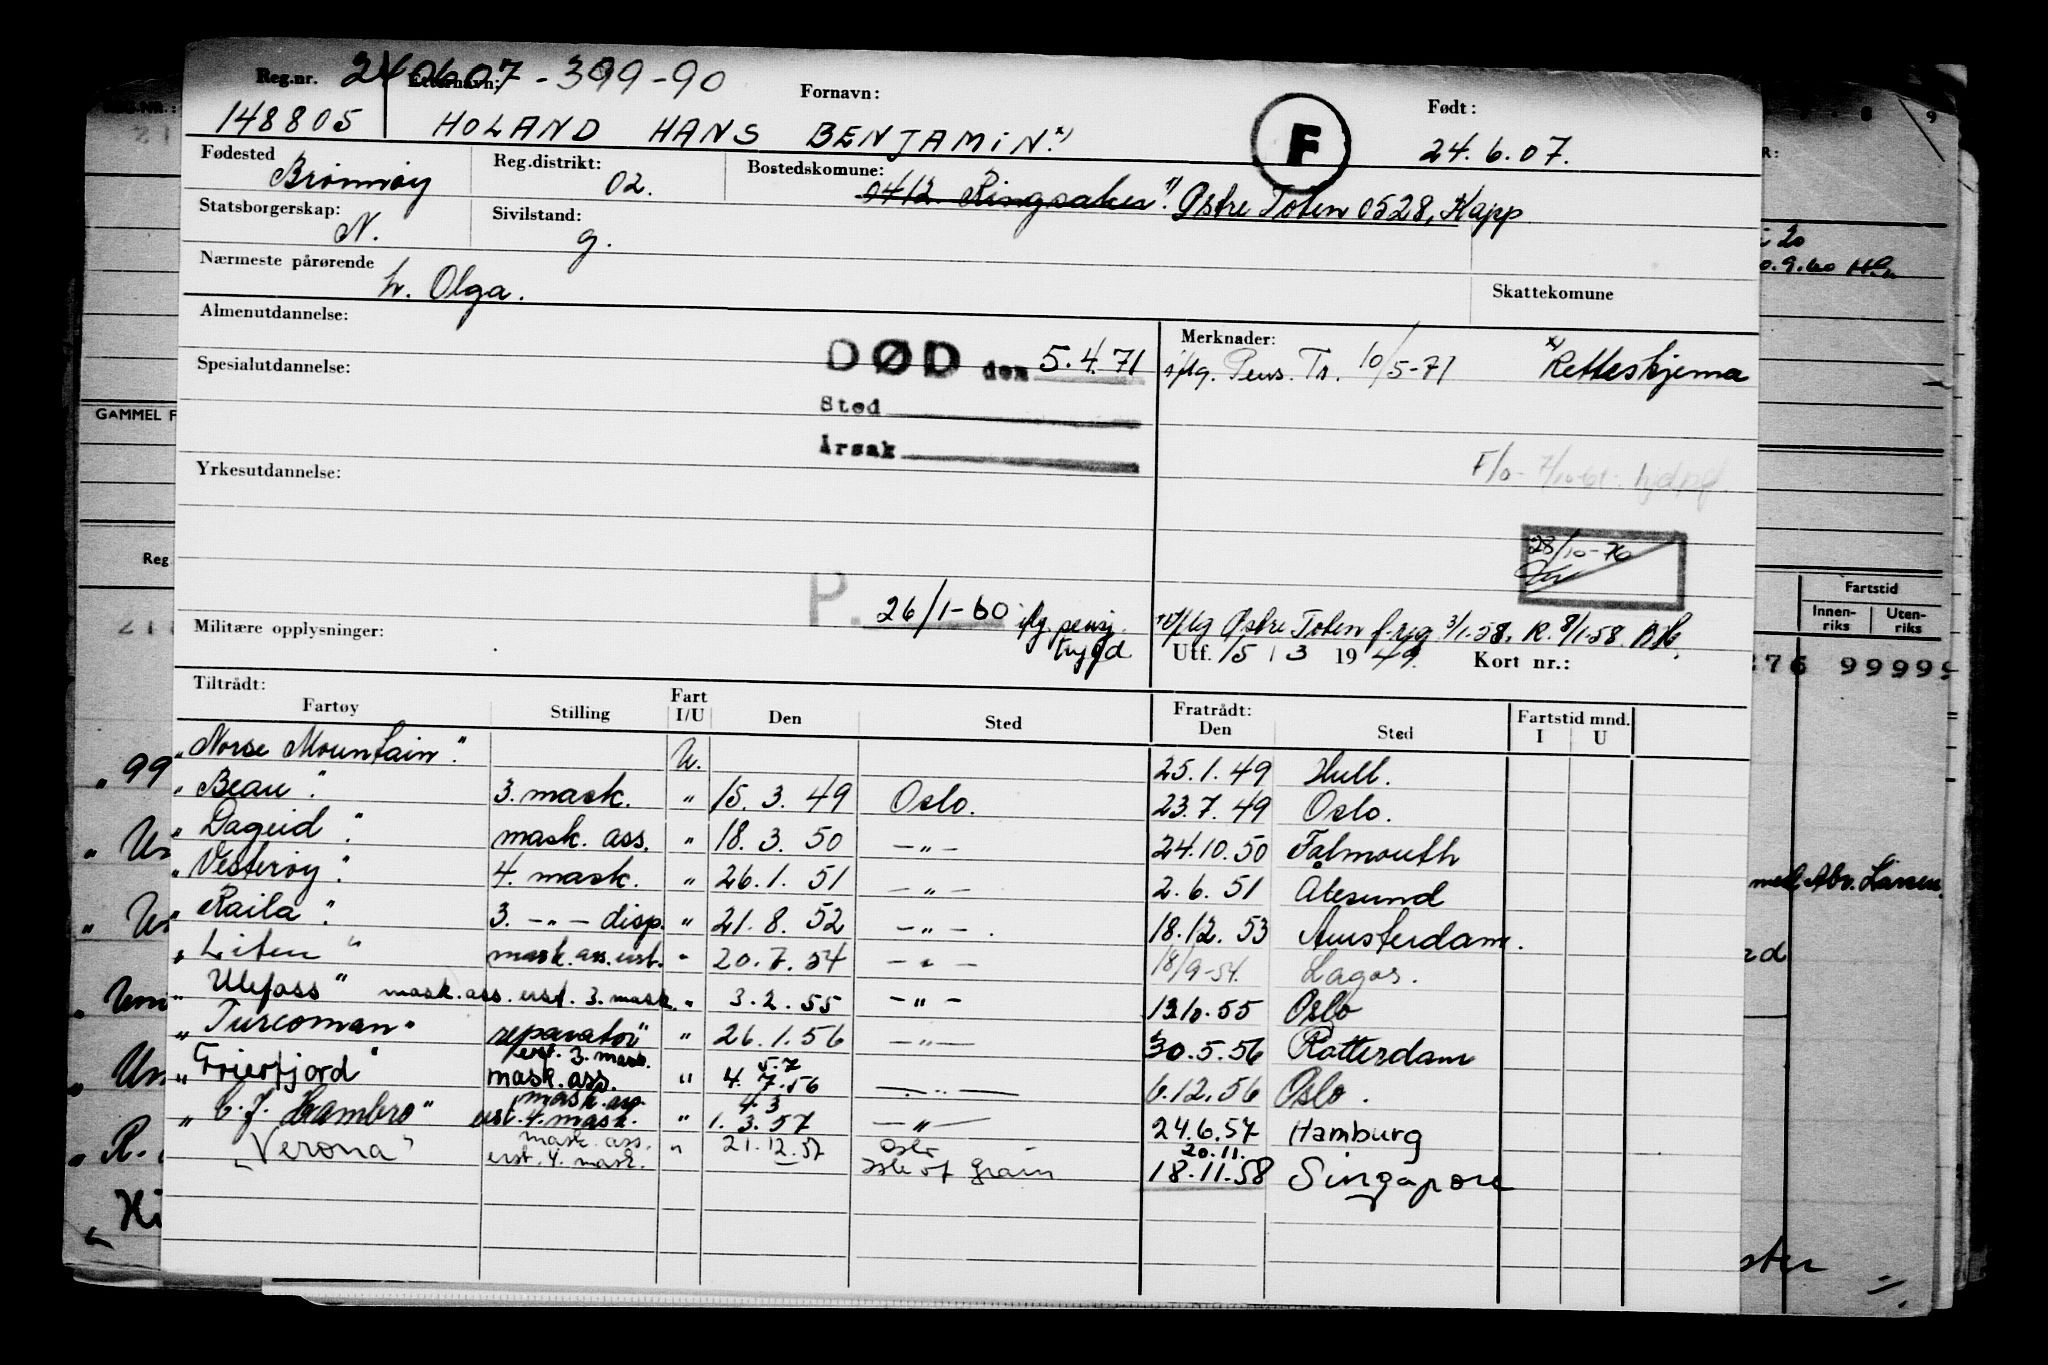 Reg.nr. 240607-399-90 Etternavn: Fornavn: Født:
148805 HOLAND HANS BENJAMIN. x) F 24.6.07.
Fødested Reg.distrikt: Bostedskomune:
Brønnøy 02. 0412 Ringsaker x) Østre Toten 0528, Kapp
Statsborgerskap: Sivilstand:
N. g.
Nærmeste pårørende
h. Olga. Skattekomune
Almenutdannelse: Merknader:
DØD den 5.4.71 iflg. Pens. Tr. 10/5-71 x) Retteskjema
Spesialutdannelse:
Sted
Årsak
Yrkesutdannelse: F/o - 7/10-61
28/10-76
P. 26/1-60 iflg pensj. trygd
Militære opplysninger: x) iflg Østre Toten f.reg 3/1.58, R. 8/1.58
Utf. 15 / 3 1949. Kort nr.:
Tiltrådt: Fratrådt:
Fartøy Stilling Fart I/U Den Sted Den Sted Fartstid mnd. I U
"Norse Mountain". U. 25.1.49 Hull.
"Beau". 3. mask. " 15. 3. 49 Oslo. 23.7.49 Oslo.
"Dageid". mask. ass. " 18. 3. 50 — " — 24.10.50 Falmouth
"Vesterøy". 4. mask. " 26.1. 51 — " — 2.6.51 Ålesund
"Raila". 3. — " — disp. " 21. 8. 52 — " — . 18.12.53 Amsterdam.
"Liten" mask.ass.erst. " 20. 7. 54 — " — 18/9-54. Lagos.
"Ulefoss" mask.ass. erst. 3. mask. " 3.2.55 — " — 13.10.55 Oslo
"Turcoman" reparatør " 26.1.56 — " — 30.5.56 Rotterdam
erst. 3. mask. 5.7
"Frierfjord" mask. ass. " 4.7.56 — " — 6.12.56 Oslo.
mask. ass. 4.3
"C. J. Hambro" erst. 4. mask. " 1.3.57 — " — 24.6.57 Hamburg
"Verona" mask. ass. " 21.12.57 Oslo 20.11.
erst. 4. mask. Isle of Grain 18.11.58 Singapore
GAMMEL F
Reg
Fartstid
Innenriks Utenriks
276 99999